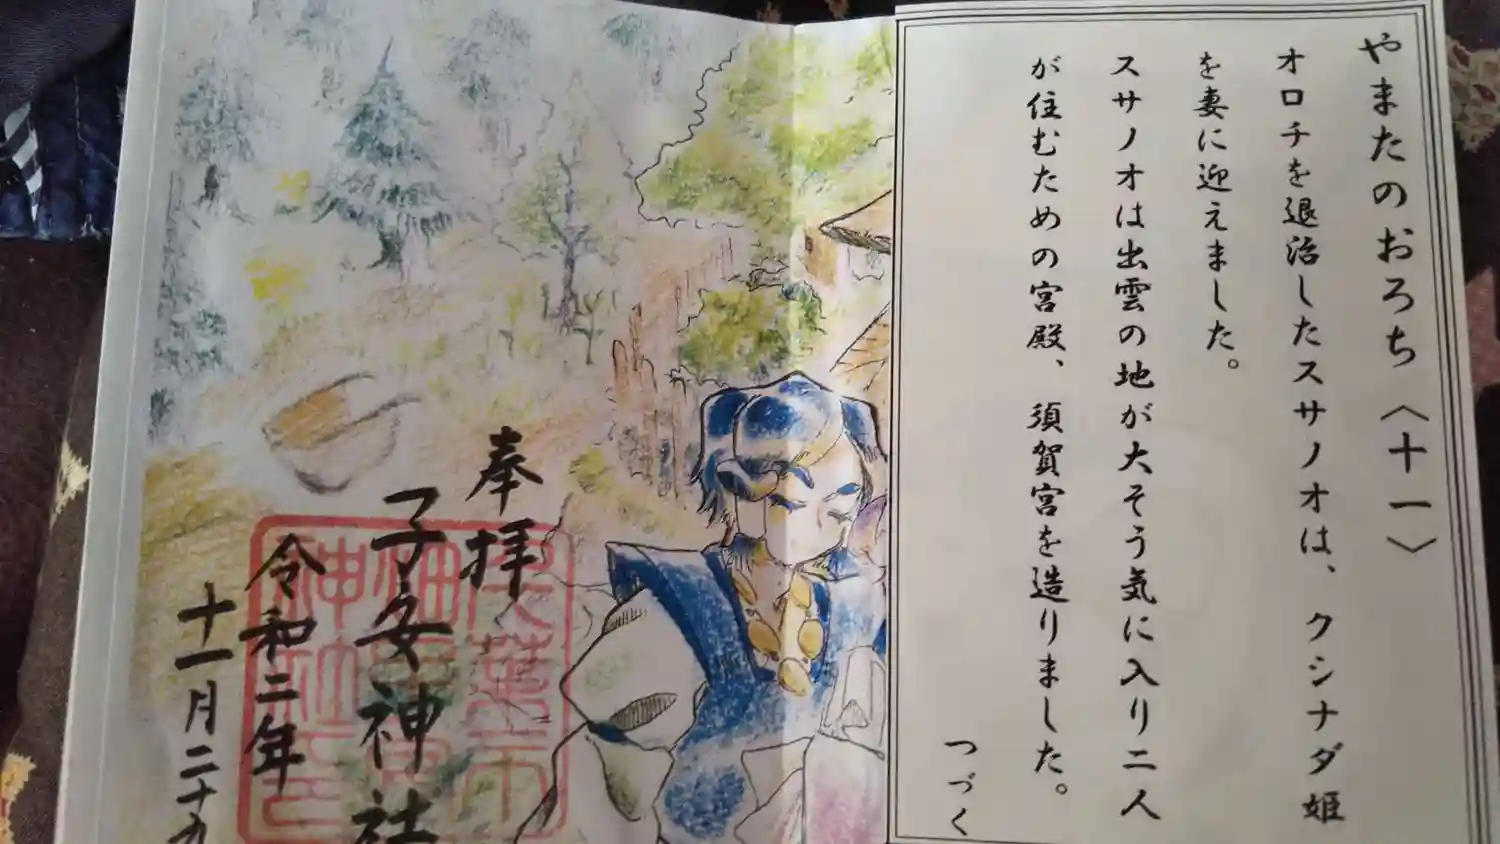 やまたのおろち〈十一〉
オロチを退治したスサノオは、クシナダ姫
を妻に迎えました。
スサノオは出雲の地が大そう気に入り二人
が住むための宮殿、須賀宮を造りました。
つづく
奉拝
子安神社
令和二年
十一月二十九